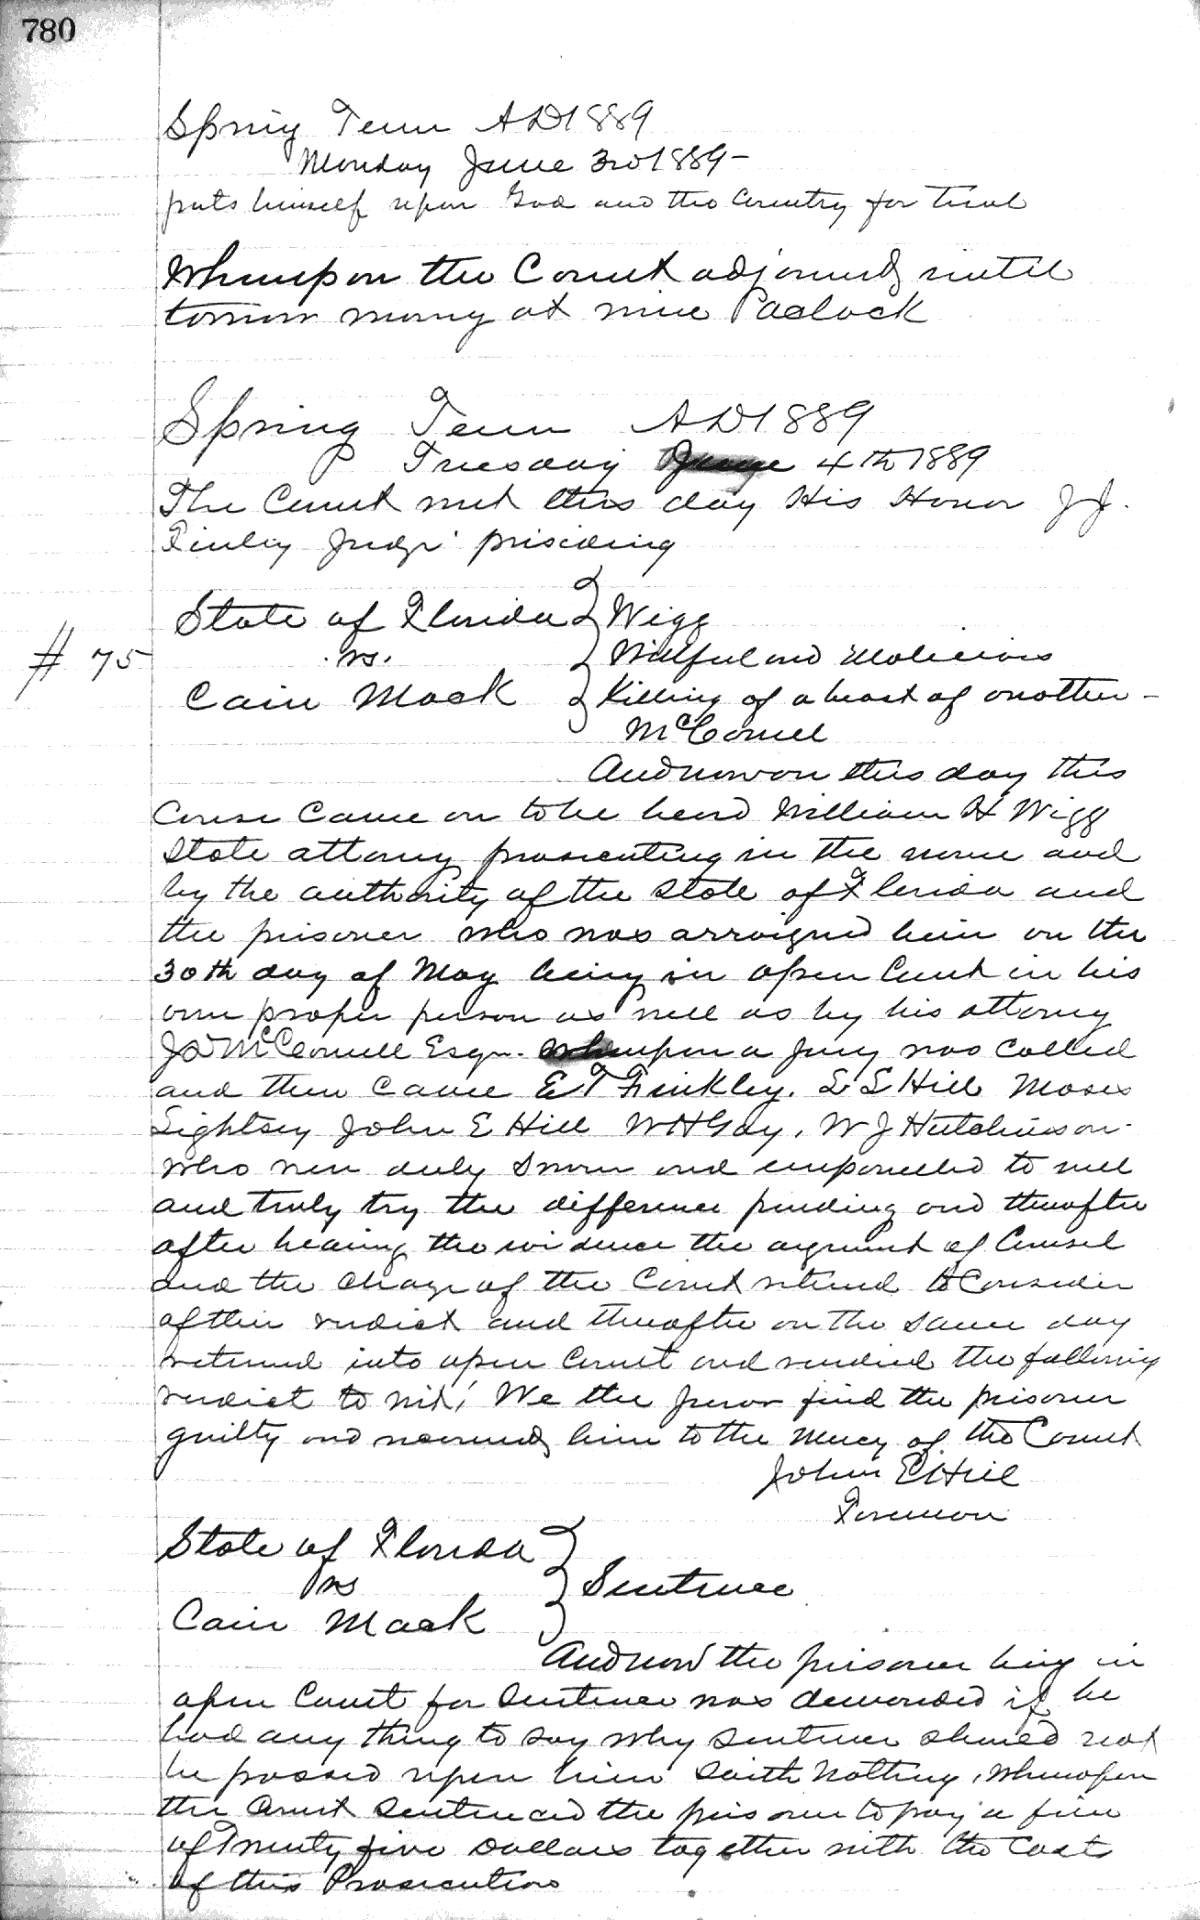 780
Spring Term AD1889
Monday June 3rd 1889-
puts himself upon God and the Country for trial
Whereupon the Court adjourned until
tomorrow morning at nine Oaclock
Spring Term AD1889
Tuesday June 4th 1889
The Court met this day His Honor J J.
Finley Judge presiding
State of Florida } Wigg
# 75 vs. } Willful and Malicious
Cain Mack } Killing of a beast of another -
McConnell
And now on this day this
Cause Came on to be heard William H Wigg
State attorney prosecuting in the name and
by the authority of the State of Florida and
the prisoner who was arraigned herein on the
30th day of May being in open Court in his
own proper person as well as by his attorney
McConnell Esqr. Whereupon a Jury was Called
and then Came E T Finkley. S S Hill Moses
Lightsey John E Hill W H Gay, W J Hutchinson
who were duly Sworn and empanelled to well
and truly try the difference pending and thereafter
after hearing the evidence the argument of Counsel
and the Charge of the Court retired to Consider
of their verdict and thereafter on the Same day
returned into open Court and rendered the following
verdict to wit; We the Juror find the prisoner
guilty and recommend him to the Mercy of the Court
John E Hill
Foreman
State of Florida }
vs } Sentence
Cain Mack }
And now the prisoner being in
open Court for Sentence was demanded if he
had any thing to say why Sentence should not
be passed upon him Saith Nothing, Whereupon
the Court Sentenced the prisoner to pay a fine
of Twenty five Dollars together with the Costs
of this Prosecution